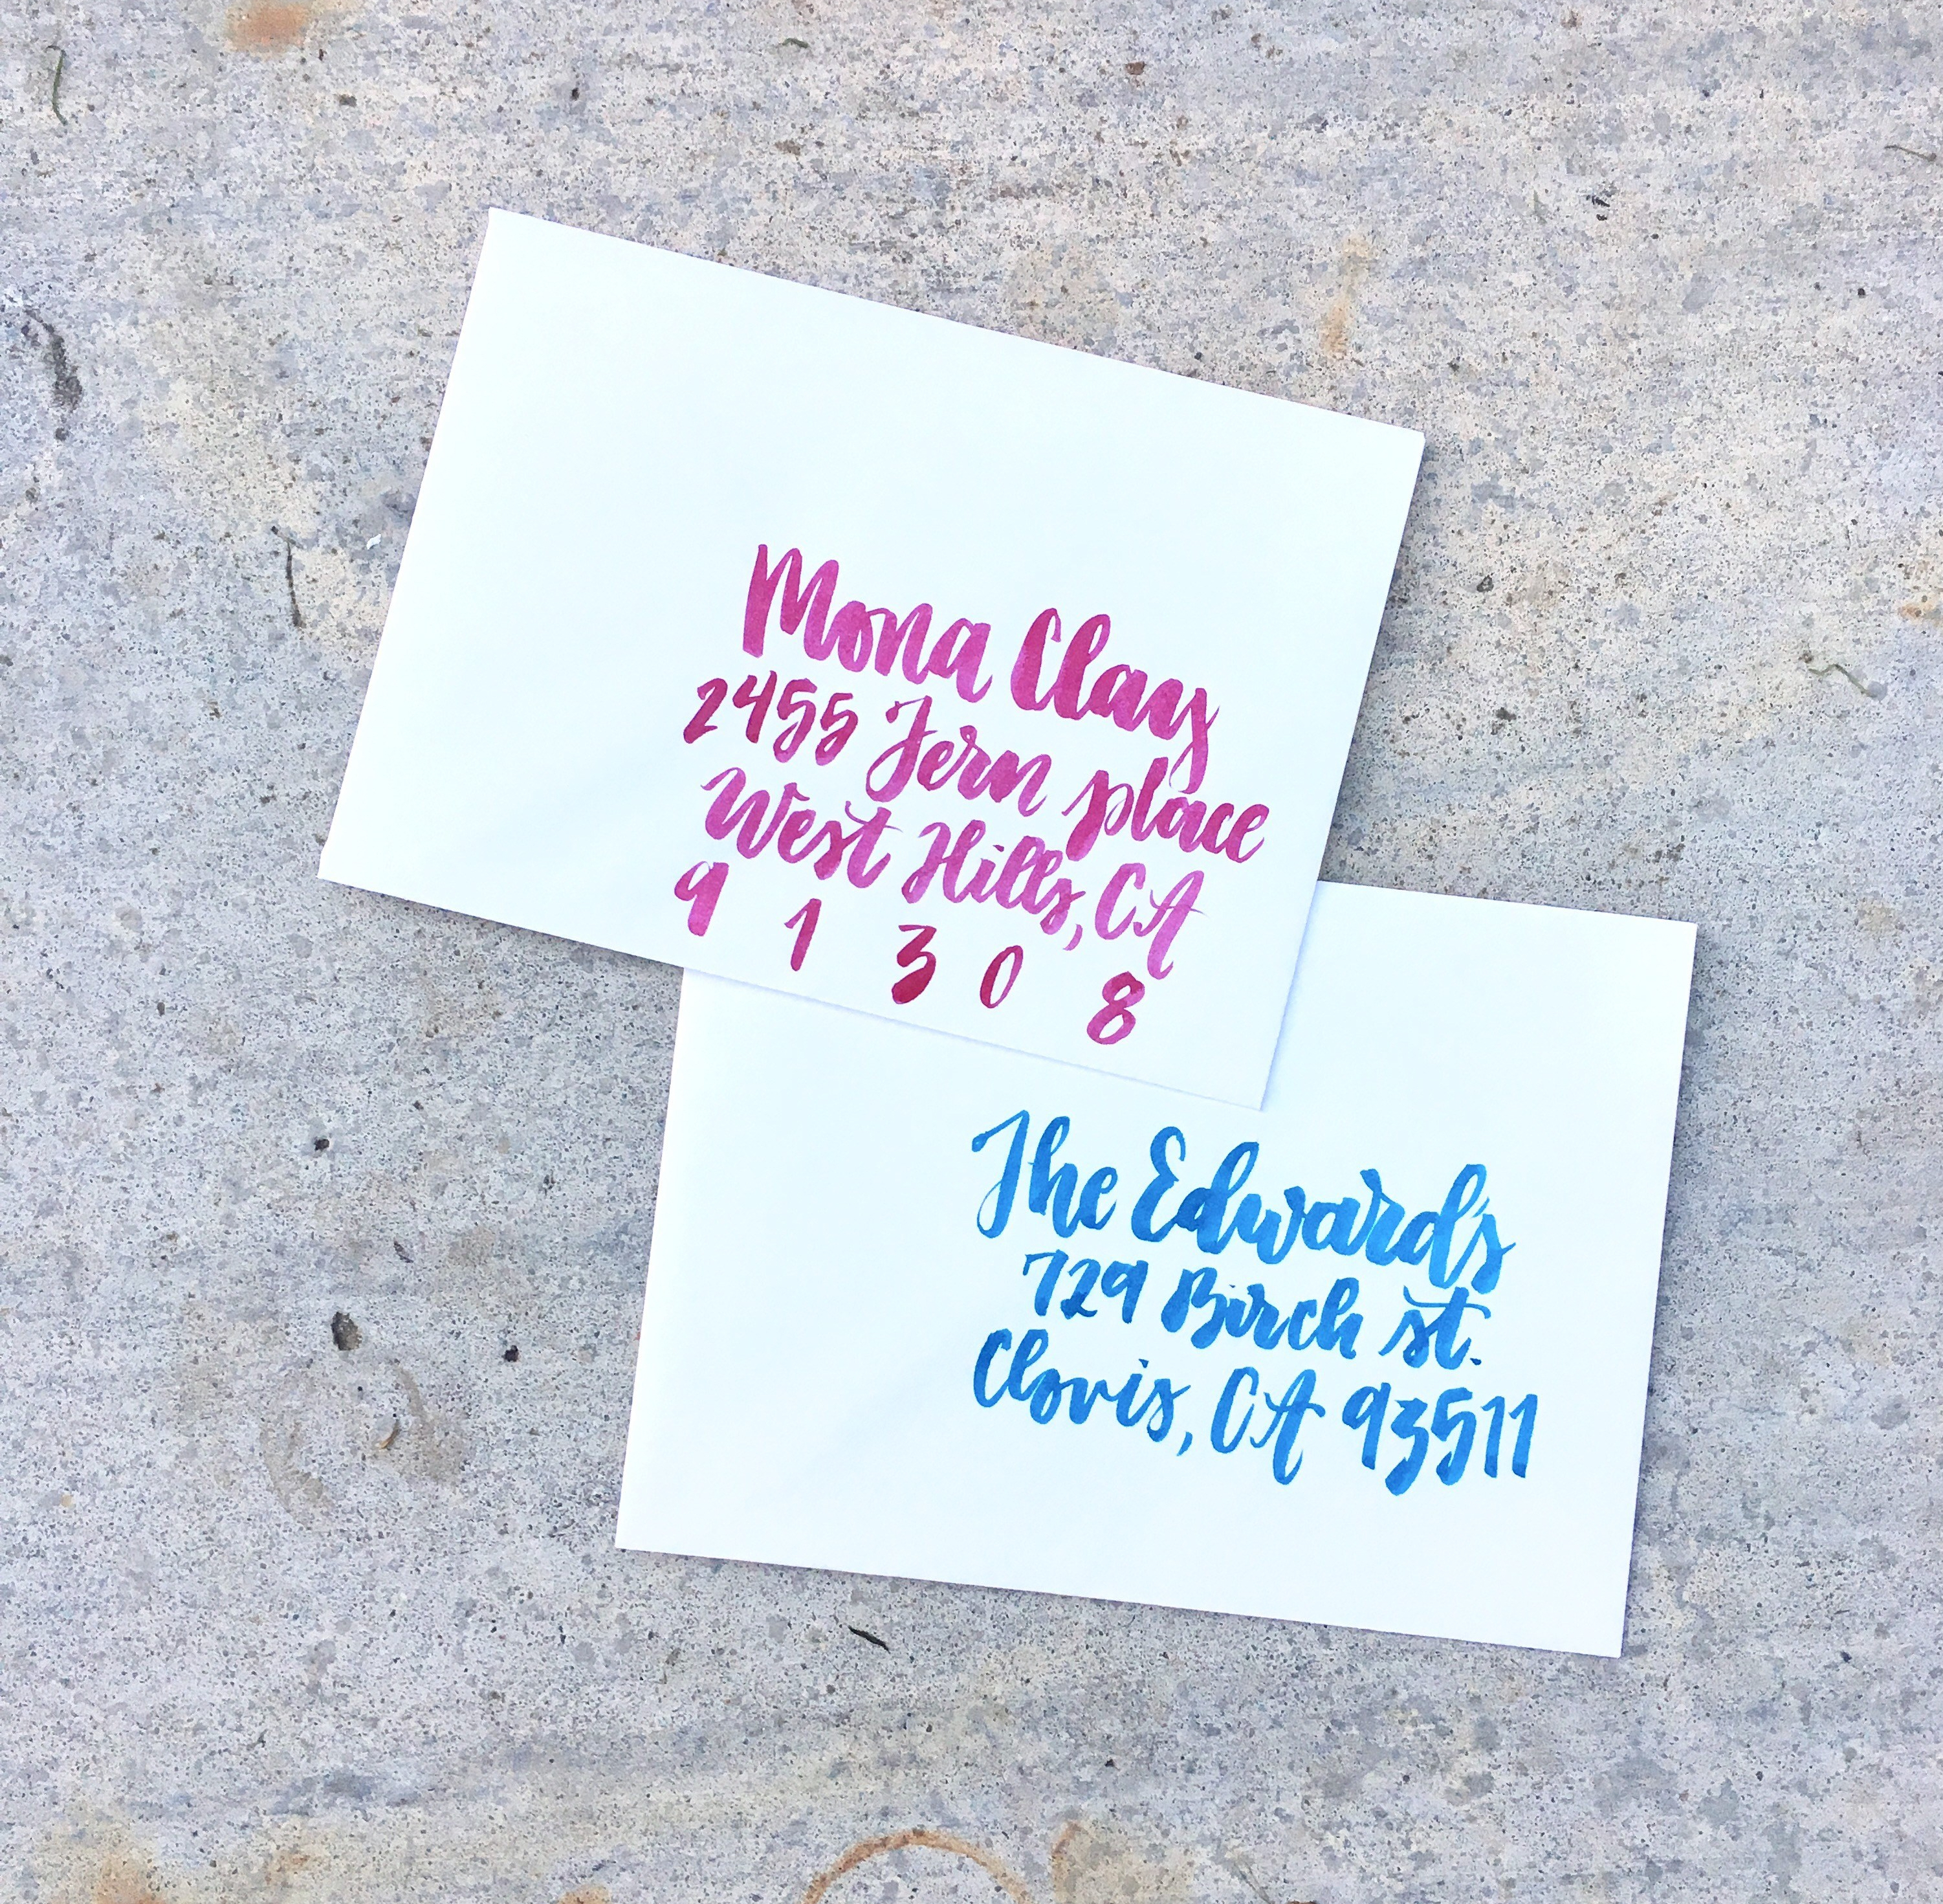 Mona Clay
2455 Fern place
West Hills, CA
9 1 3 0 8
The Edwards
729 Birch st.
Clovis, CA 93511